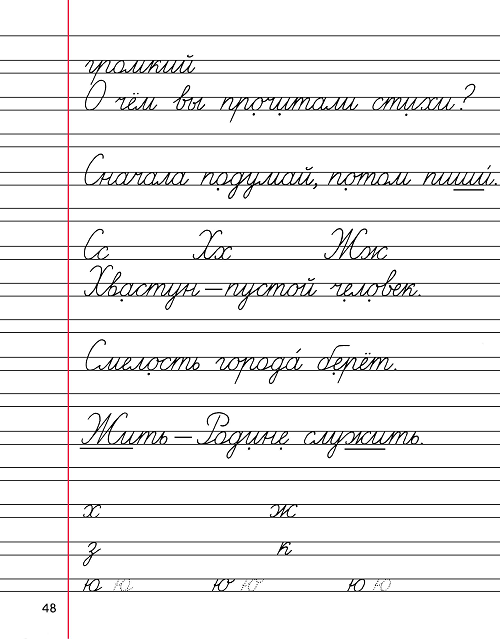 громкий
О чём вы прочитали стихи?
Сначала подумай, потом пиши́.
Сс Хх Жж
Хвастун – пустой человек.
Смелость города́ берёт.
Жить – Родине служить.
х ж
з к
ю ю ю ю ю ю
48